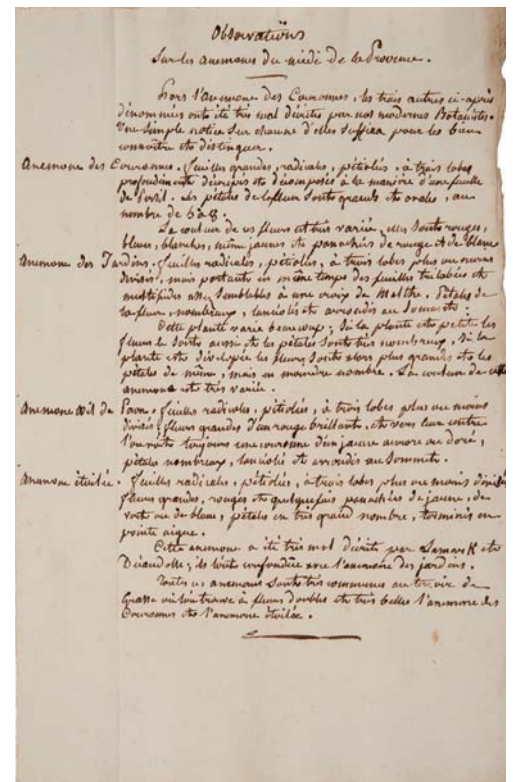 Observations
Sur les anemones du midi de la Provence.
Hors l'anemone des Couronnes, les trois autres ci-après
dénommées ont été très mal décrites par nos modernes Botanistes.
Une simple notice sur chacune d'elles suffira pour les bien
connaître et distinguer.
Anemone des Couronnes. feuilles grandes, radicales, pétiolées, à trois lobes
profondément découpés et décomposés à la manière d'une feuille
de Persil. Les pétales de la fleur sont grands et ovales, au
nombre de 5 à 8.
La couleur de ces fleurs est très variée, elles sont rouges,
bleues, blanches, même jaunes et panachées de rouge et de blanc
Anemone des Jardins. feuilles radicales, pétiolées, à trois lobes plus ou moins
divisés, mais portant en même temps des feuilles trilobées et
multifides assez semblables à une croix de Malthe. Pétales de
la fleur, nombreux, lanciolés et arrondis au Sommet.
Cette plante varie beaucoup; si la plante est petite les
fleurs le sont aussi et les pétales sont très nombreux, si la
plante est développée les fleurs sont alors plus grandes et les
pétales de même, mais en moindre nombre. La couleur de cette
anemone est très variée.
Anemone œil de Paon. feuilles radicales, pétiolées, à trois lobes plus ou moins
divisés; fleurs grandes d'un rouge brillant, et vers leur centre
l'on voit toujours une couronne d'un jaune aurore ou doré,
pétales nombreux, lanciolés et arrondis au Sommet.
Anemone étoilée. feuilles radicales, pétiolées, à trois lobes plus ou moins divisés
fleurs grandes, rouges et quelquefois panachées de jaune, de
vert ou de blanc, pétales en très grand nombre, terminés en
pointe aigue.
Cette anemone a été très mal décrite par Lamarck et
Décandolle; ils l'ont confondue avec l'anemone des jardins.
Toutes ces anemones sont très communes au terroir de
Grasse où l'on trouve à fleurs doubles et très belles l'anemone des
Couronnes et l'anemone étoilée.